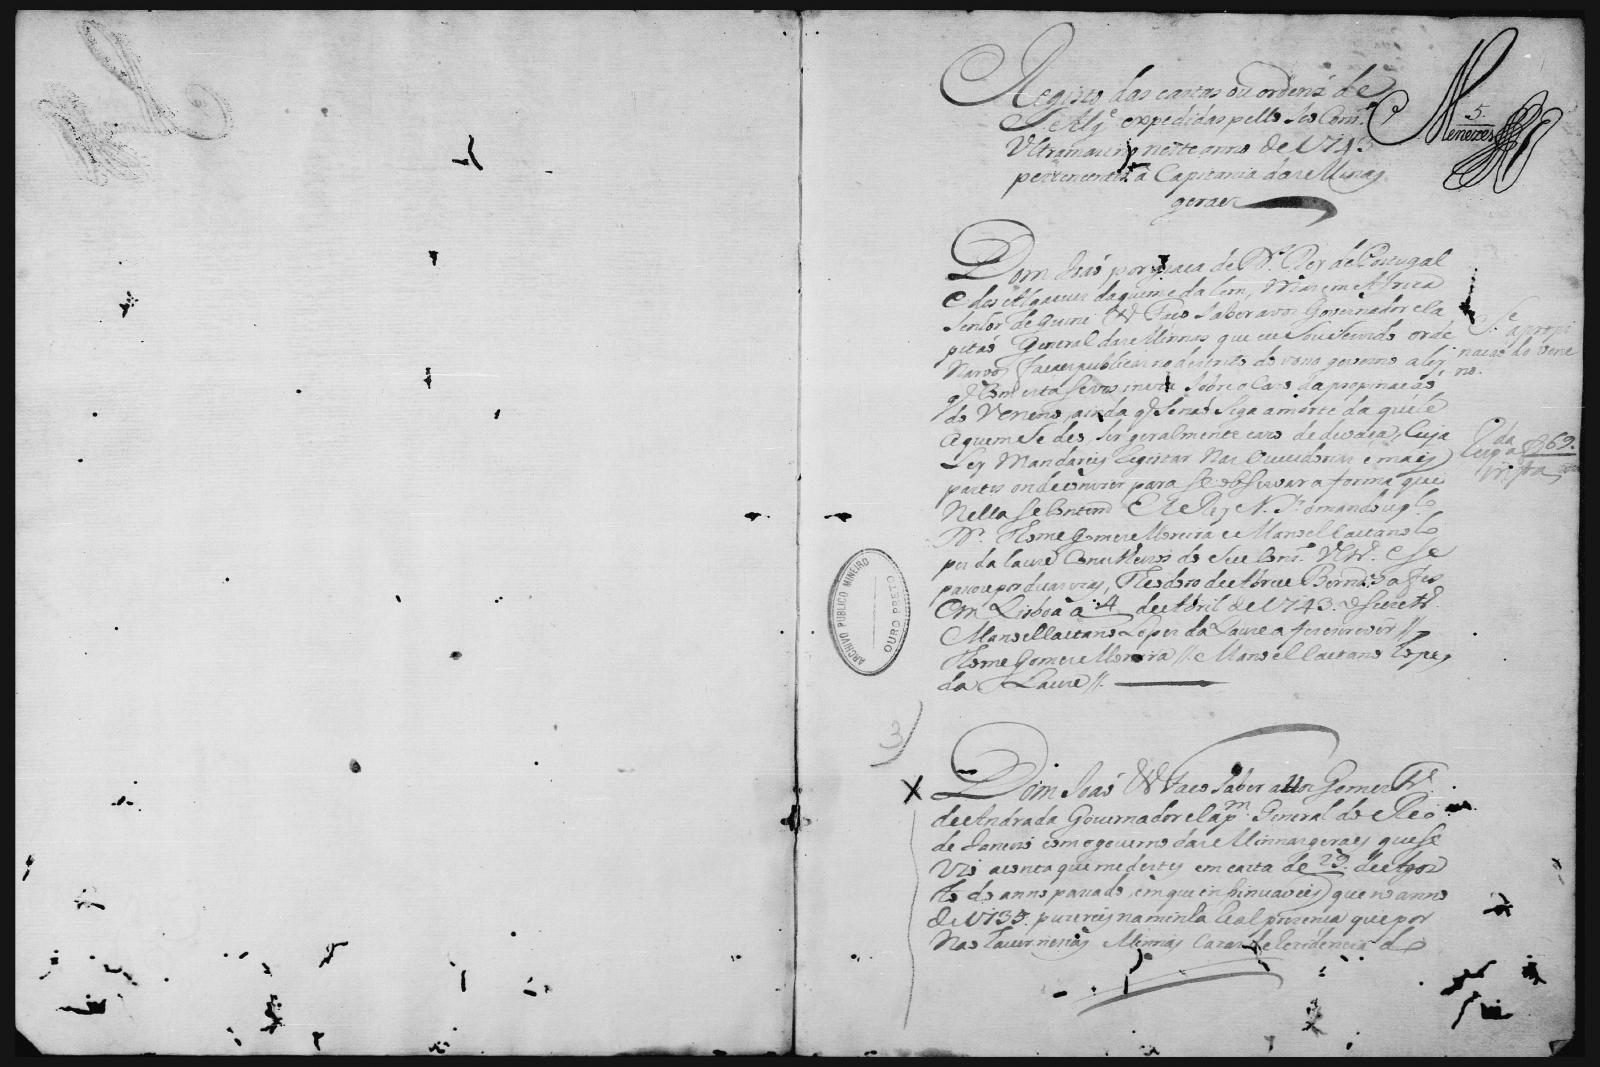 5.
Menezes
Registo das cartas ou ordens de
S. Mg.e expedidas pello seo Cons.o
Ultramarino neste anno de 174
pertencentes â Capitania das Minas
geraes
Dom Joaõ por graça de D.s Rey de Portugal
e dos Algarves daquem e dalem, Mar em Africa
Senhor de Guine &.a Faço saber avos Governador e Ca
pitaõ General das Minnas que eu Sou Servido orde
narvos façaes publicar no destrito do vosso governo a ley
q̃ Com esta Se vos invia Sobre o Cazo da propinaçaõ
do Veneno, ainda q̃ Senaõ Siga a morte da quele
aquem Se deo, Ser geralmente cazo de devaça, Cuja
Ley Mandareis registar Nas Ouvidorias e mais
partes onde convier para Se observar a forma que
Nella Se Contem. ElRey N. S.r o mandou p.lo
D.r Thome Gomes Moreira e Manoel Caetano Lo
pes da Lavre Conselheiros do Seu Cons.o Ultr.o e Se
passou por duas vias, Theodoro de Abreu Bernd.es a fes
Em Lisboa a 4 de Abril de 1743. O Secret.o
Manoel Caetano Lopes da Lavre a fes escrever //
Thome Gomes Moreira // Manoel Caetano Lopes
da Lavre //.
S.e
a propi
nacaõ do vene
no.
da
69.
ARCHIVO PUBLICO MINEIRO
OURO PRETO
3
X
Dom Joaõ &.a Faço Saber a vos Gomes Fr.e
de Andrada Governador e Cap.m General do Rio
de Janeiro com o governo das Minnas geraes que Se
vio a conta que me destes em carta de 29. de Agos
to do anno passado, em que insinuaveis que no anno
de 1735. puzereis na minha Real prezença que por
Nas Minnas Cazas de Rezidencia do